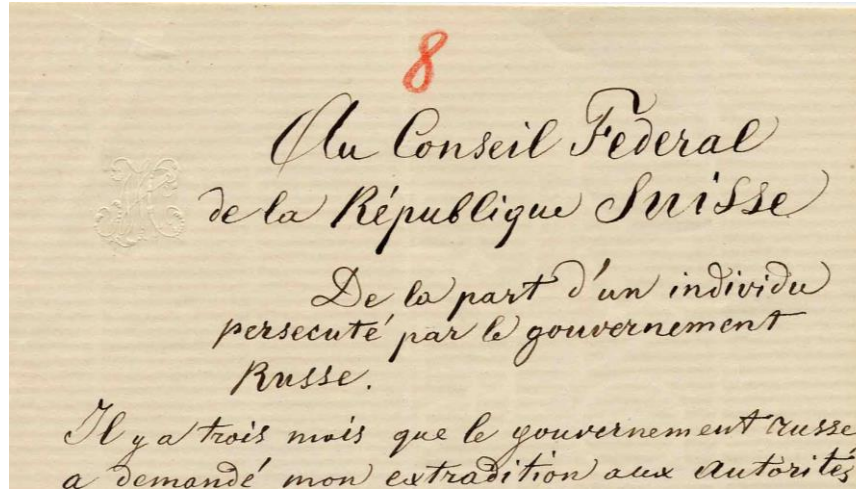 8
Au Conseil Federal
de la République Suisse
De la part d'un individu
persecuté par le gouvernement
Russe.
Il y a trois mois que le gouvernement russe
a demandé mon extradition aux autorités